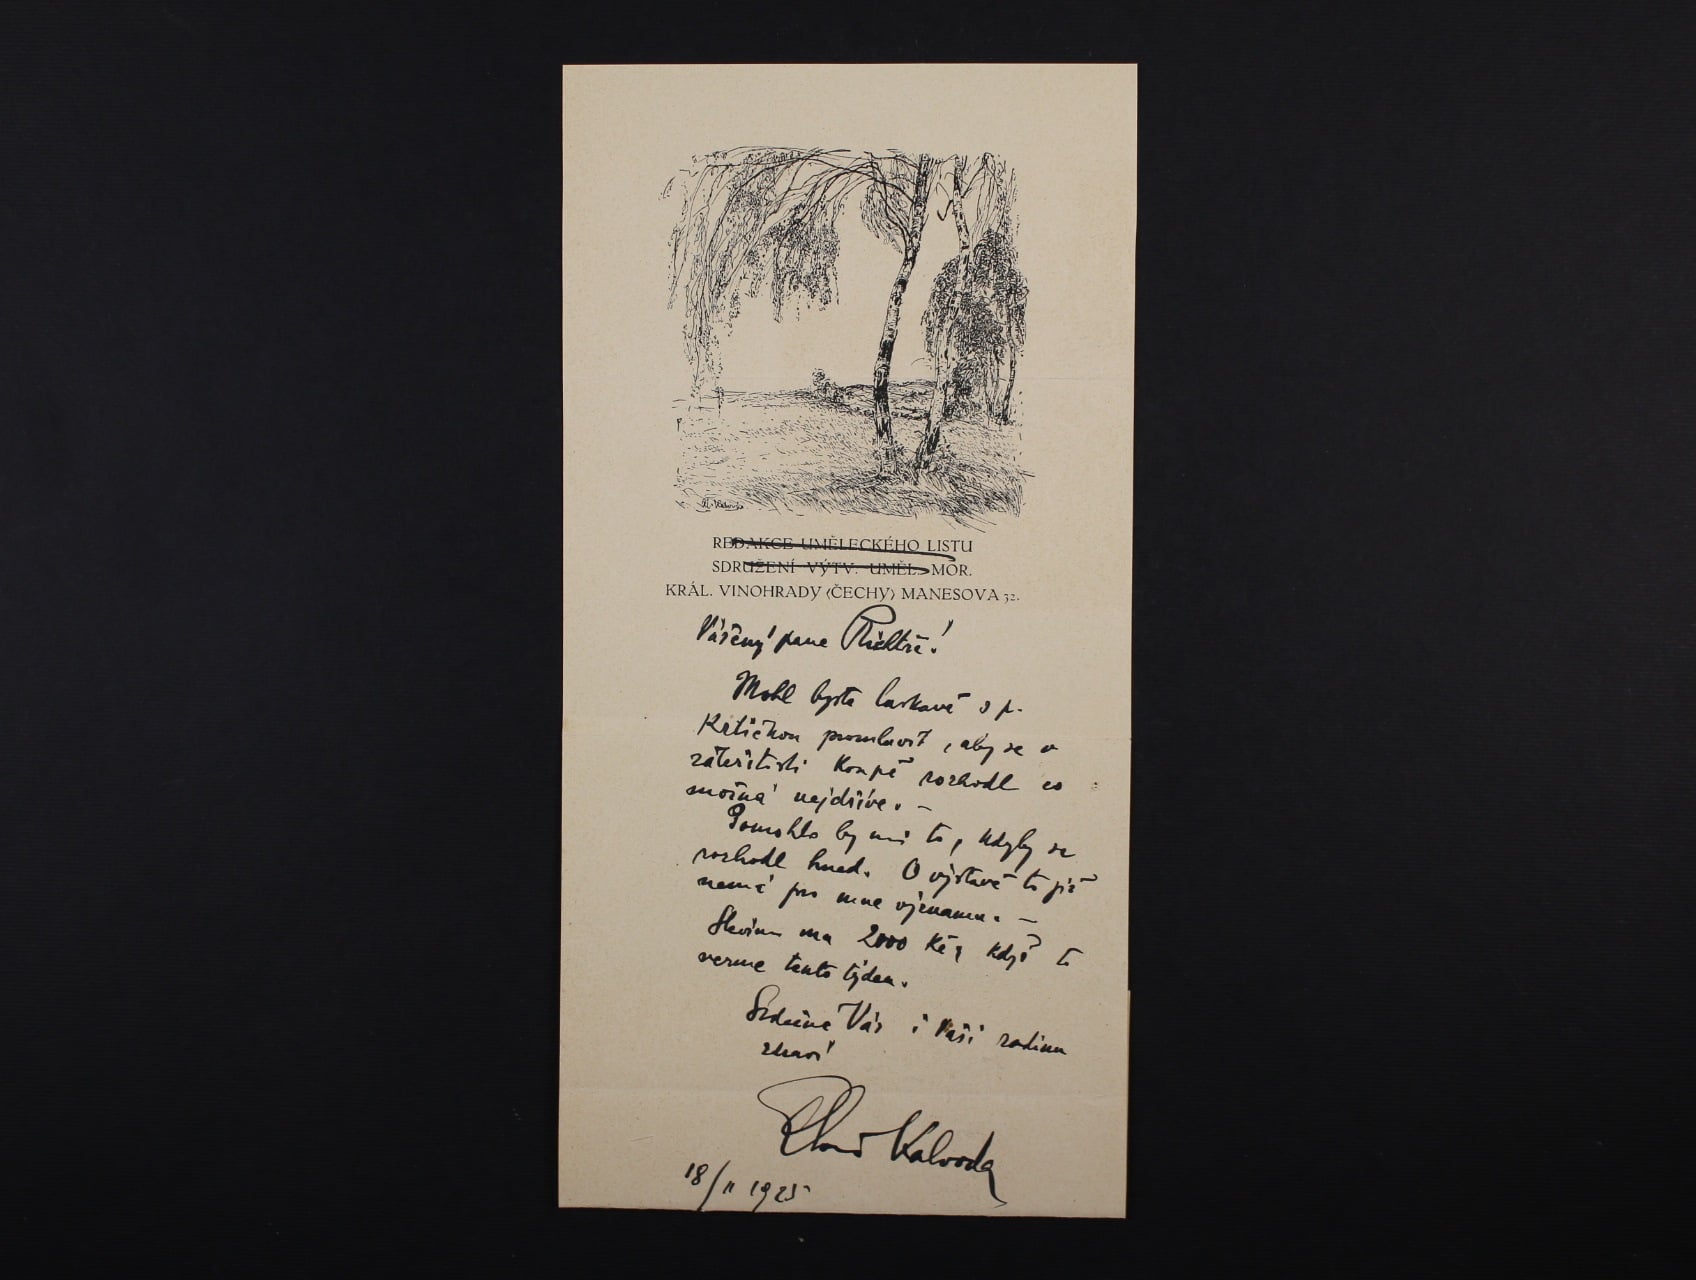 A. Kalvoda
REDAKCE UMĚLECKÉHO LISTU
SDRUŽENÍ VÝTV. UMĚL. MOR.
KRÁL. VINOHRADY (ČECHY) MANESOVA 32.
Vážený pane Richtře!
Mohl byste laskavě s p.
Kritičkou promluvit, aby se v
záležitosti koupě rozhodl co
možná nejdříve. —
Pomohlo by mi to, kdyby se
rozhodl hned. O výstavě to již
nemá pro mne významu. —
Slevím na 2000 Kč, když to
vezme tento týden.
Srdečně Vás i Vaši rodinu
zdraví
Alois Kalvoda
18/II 1925